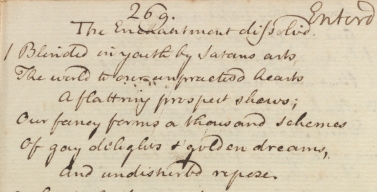 269. Enterd
The Enchantment dissolv'd
1 Blinded in youth by Satans arts
The world to our unpractis'd hearts
A flatt'ring prospect shows;
Our fancy forms a thousand schemes
Of gay delights & golden dreams,
And undisturb'd repose.